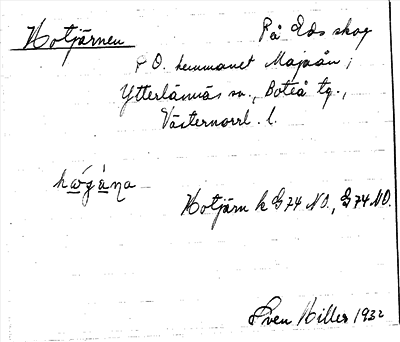 Hotjärnen På Eds skog
p O. hemmanet Majaån,
Ytterlännäs sn., Boteå tg.,
Västernorrl. l.
Hotjärn k G74 NO., G74 NO.
Sven Hiller 1932